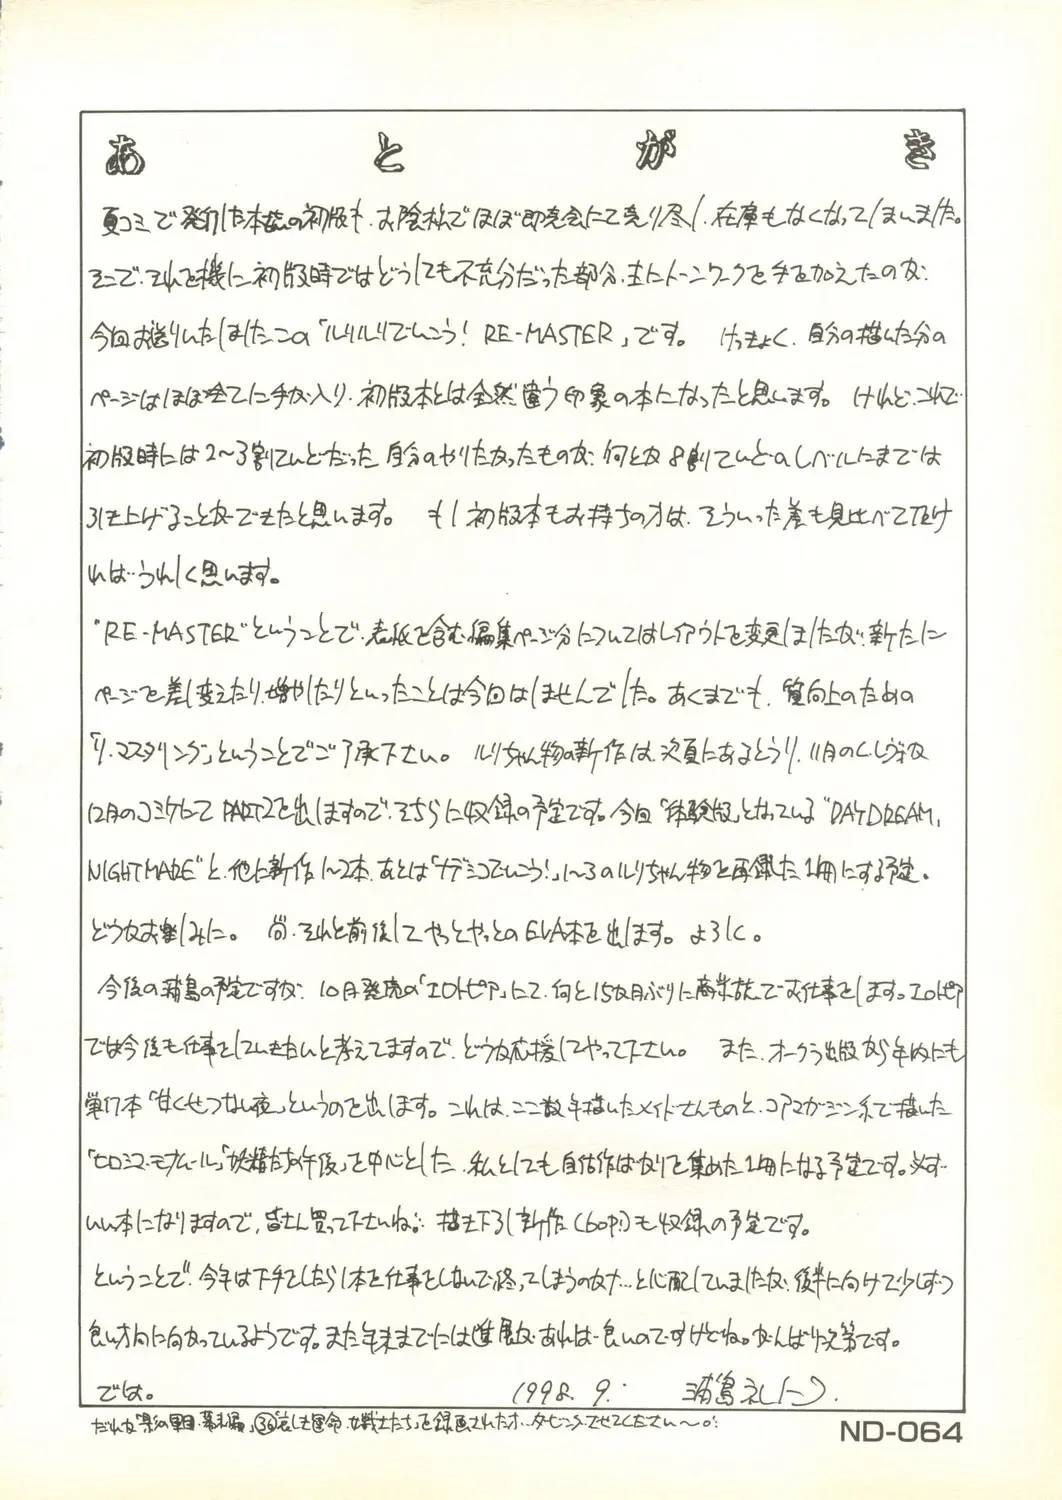 あとがき
夏コミで発行した本誌の初版も、お陰様でほぼ即売会にて売り尽し、在庫もなくなってしまいました。
そこで、それを機に、初版時ではどうしても不充分だった部分、主にトーンワークを手を加えたのが、
今回お送りいたしましたこの「ルリルリでいこう! RE-MASTER」です。 けっきょく、自分の描いた分の
ページはほぼ全てに手が入り、初版本とは全然違う印象の本になったと思います。 けれど、これで
初版時には2〜3割ていどだった、自分のやりたかったものが、何とか8割ていどのレベルにまでは
引き上げることができたと思います。 もし初版本もお持ちの方は、そういった差も見比べて頂け
ればうれしく思います。
"RE-MASTER"ということで、表紙を含む編集ページ分についてはレイアウトを変更しましたが、新たに
ページを差し変えたり、増やしたりといったことは今回はしませんでした。あくまでも、質向上のための
「リ・マスタリング」ということでご了承下さい。 ルリちゃん物の新作は、次頁にあるとうり、11月のC.レヴォか
12月のコミケにて PART2を出しますので、そちらに収録の予定です。今回「体験版」となっている"DAYDREAM,
NIGHTMARE"と、他に新作1〜2本、あとは「ナデシコでいこう!」1〜3のルリちゃん物を再録した1冊にする予定。
どうかお楽しみに。 尚、それと前後してやっとやっとのEVA本を出します。よろしく。
今後の浦島の予定ですが、10月発売の「エロトピア」にて、何と15か月ぶりに商業誌でお仕事をします。エロトピア
では今後も仕事をしていきたいと考えてますので、どうか応援してやって下さい。 また、オークラ出版から年内にも
単行本「甘くせつない夜」というのを出します。これは、ここ数年描いたメイドさんものと、コアマガジン系で描いた
「ヒロシマ・モナムール」「妖精たちの午後」を中心とした、私としても自信作ばかりを集めた1冊になる予定です。必ず
いい本になりますので、皆さん買って下さいね。 描き下ろし新作(60P!)も収録の予定です。
ということで、今年は下手をしたら1本も仕事をしないで終ってしまうのかナ…と心配していましたが、後半に向けて少しずつ
良い方向に向かっているようです。また年末までには進展があれば良いのですけどね。がんばり次第です。
では。 1998.9. 浦島礼仁
だれか「影の軍団・幕末編」を録画された方、ダビングさせてください〜。
ND-064